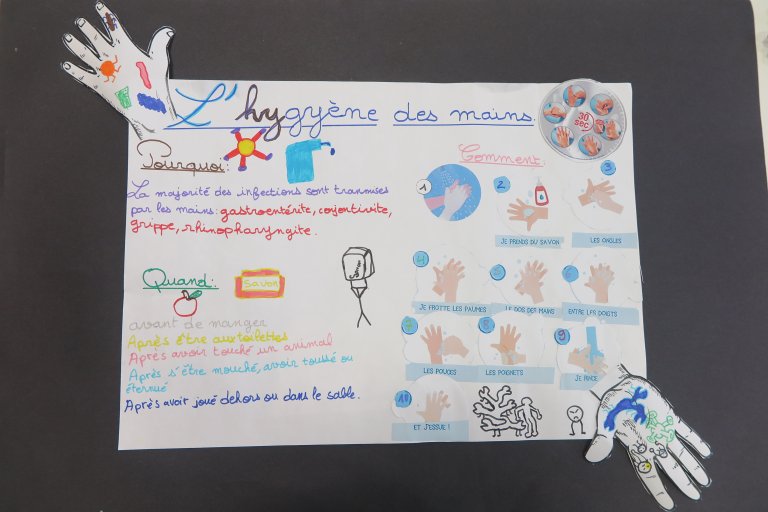 L'hygyène des mains.
30 sec
Pourquoi:
La majorité des infections sont tranmises
par les mains: gastroentérite, conjontivite,
grippe, rhinopharyngite.
Quand:
Savon
avant de manger
Après être aux toilettes
Après avoir touché un animal
Après s'être mouché, avoir toussé ou
éternué
Après avoir joué dehors ou dans le sable.
Comment:
1
2
3
JE PRENDS DU SAVON
LES ONGLES
4
5
6
JE FROTTE LES PAUMES
LE DOS DES MAINS
ENTRE LES DOIGTS
7
8
9
LES POUCES
LES POIGNETS
JE RINCE
10
ET J'ESSUIE !